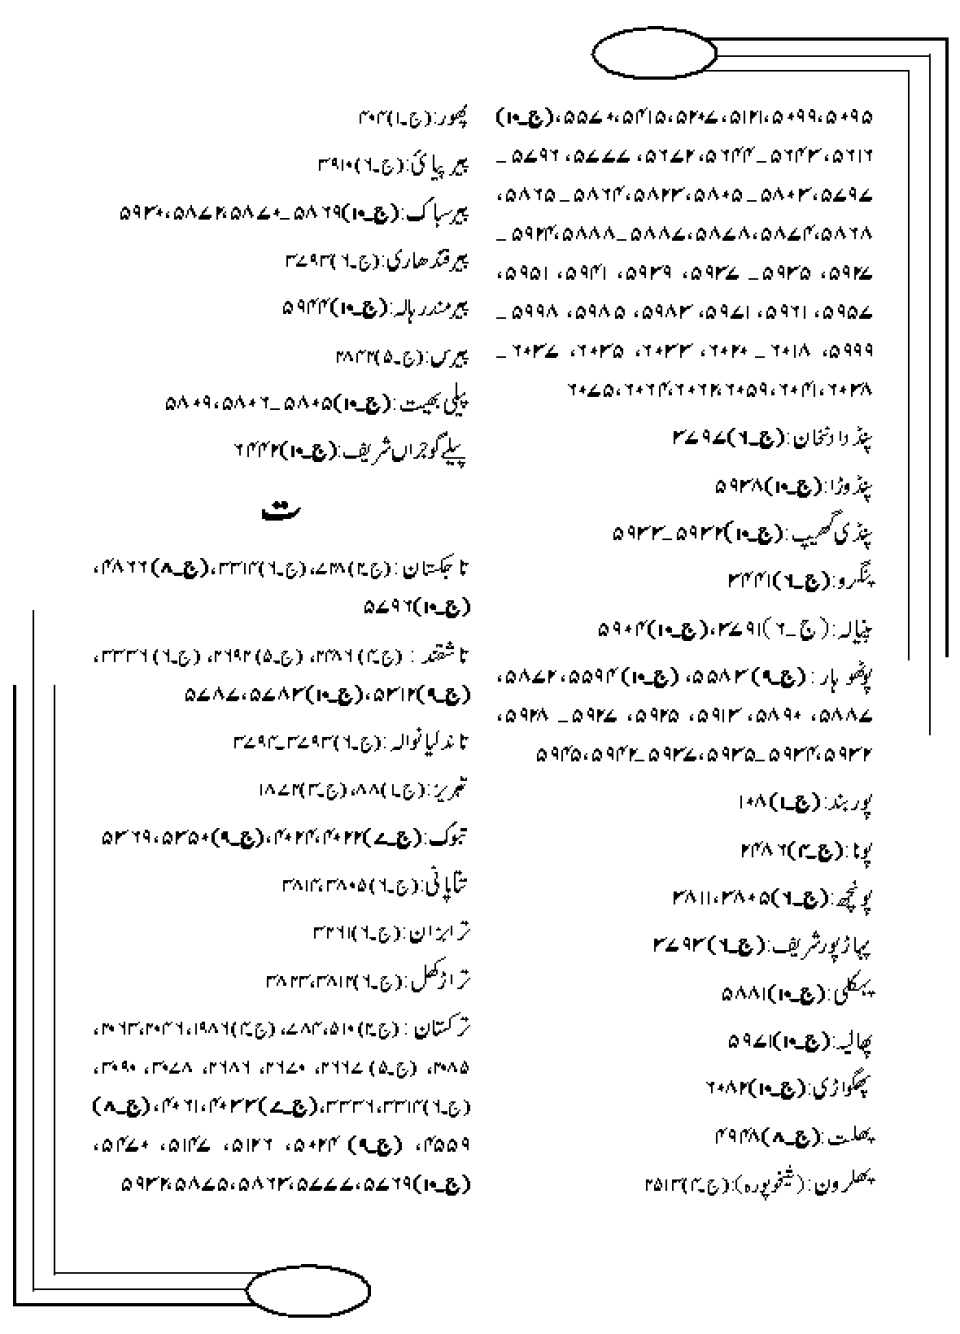 ۵۰۹۵، ۵۰۹۹، ۵۱۲۱، ۵۲۰۷، ۵۴۱۵، ۵۵۷۰، (ج۔۱۰)
۵۶۱۶، ۵۶۴۳۔ ۵۶۴۴، ۵۶۷۲، ۵۷۷۷، ۵۷۹۶۔
۵۷۹۷، ۵۸۰۳۔ ۵۸۰۵، ۵۸۲۳، ۵۸۶۴۔ ۵۸۶۵،
۵۸۶۸، ۵۸۷۴، ۵۸۷۸، ۵۸۸۷۔ ۵۸۸۸، ۵۹۲۴۔
۵۹۲۷، ۵۹۳۵۔ ۵۹۳۷، ۵۹۳۹، ۵۹۴۱، ۵۹۵۱،
۵۹۵۷، ۵۹۶۱، ۵۹۷۱، ۵۹۸۳، ۵۹۸۵، ۵۹۹۸۔
۵۹۹۹، ۶۰۱۸۔ ۶۰۲۰، ۶۰۳۳، ۶۰۳۵، ۶۰۳۷۔
۶۰۳۸، ۶۰۴۱، ۶۰۵۹، ۶۰۶۲، ۶۰۶۴، ۶۰۷۵
پنڈ دادنخان: (ج۔۶) ۳۷۹۷
پنڈوڑا: (ج۔۱۰) ۵۹۳۸
پنڈی گھیپ: (ج۔۱۰) ۵۹۳۲۔۵۹۳۳
پنگرو: (ج۔۶) ۳۴۴۱
پوٹھوہار: (ج۔۹) ۵۵۸۳، (ج۔۱۰) ۵۵۹۴، ۵۸۷۲،
۵۸۸۷، ۵۸۹۰، ۵۹۱۳، ۵۹۲۵، ۵۹۲۷۔ ۵۹۲۸،
۵۹۳۲، ۵۹۳۴، ۵۹۳۵۔ ۵۹۳۷، ۵۹۴۲۔ ۵۹۴۵
پور بند: (ج۔۱) ۱۰۸
پونا: (ج۔۴) ۲۴۸۶
پونچھ: (ج۔۶) ۳۸۰۵، ۳۸۱۱
پہاڑپور شریف: (ج۔۶) ۳۷۹۳
پہکلی: (ج۔۱۰) ۵۸۸۱
پھالیہ: (ج۔۱۰) ۵۹۷۱
پھگواڑی: (ج۔۱۰) ۶۰۸۲
پھلت: (ج۔۸) ۴۹۴۸
پھلرون: (شیخوپورہ): (ج۔۴) ۲۵۱۳
پھور: (ج۔۱) ۴۰۴
پیر پیائی: (ج۔۶) ۳۹۱۰
پیر سباک: (ج۔۱۰) ۵۸۶۹۔۵۸۷۰، ۵۸۷۲، ۵۹۳۰
پیر قندھاری: (ج۔۶) ۳۷۹۳
پیر مندر ہالہ: (ج۔۱۰) ۵۹۴۴
پیرس: (ج۔۵) ۲۸۴۲
پیلی بھیت: (ج۔۱۰) ۵۸۰۵۔ ۵۸۰۶، ۵۸۰۹
پیلے گوجراں شریف: (ج۔۱۰) ۶۴۴۲
ت
تاجکستان: (ج۔۲) ۷۸۱، (ج۔۶) ۳۳۱۴، (ج۔۸) ۴۸۶۶،
(ج۔۱۰) ۵۷۹۶
تاشقند: (ج۔۴) ۲۳۸۶، (ج۔۵) ۲۶۹۲، (ج۔۶) ۳۳۳۶،
(ج۔۹) ۵۳۱۲، (ج۔۱۰) ۵۷۸۳، ۵۷۸۷
تاندلیانوالہ: (ج۔۶) ۳۷۹۳۔۳۷۹۴
تبریز: (ج۔۱) ۸۸، (ج۔۳) ۱۸۷۲
تبوک: (ج۔۷) ۴۰۲۲، ۴۰۲۴، (ج۔۹) ۵۳۵۰، ۵۳۶۹
تتاپانی: (ج۔۶) ۳۸۰۵، ۳۸۱۴
ترابزان: (ج۔۶) ۳۲۶۱
تراڑکھل: (ج۔۶) ۳۸۱۲، ۳۸۲۳
ترکستان: (ج۔۲) ۵۱۰، ۷۸۴، (ج۔۴) ۱۹۸۶، ۲۰۴۶، ۲۰۶۳،
۲۰۸۵، (ج۔۵) ۲۶۶۷، ۲۶۷۰، ۲۶۸۶، ۳۰۷۸، ۳۰۹۰،
(ج۔۶) ۳۳۱۴، ۳۳۳۶، (ج۔۷) ۴۰۳۳، ۴۰۶۱، (ج۔۸)
۴۵۵۹، (ج۔۹) ۵۰۲۴، ۵۱۲۶، ۵۱۴۷، ۵۴۷۰،
(ج۔۱۰) ۵۷۶۹، ۵۷۷۷، ۵۸۶۳، ۵۸۷۵، ۵۹۳۲